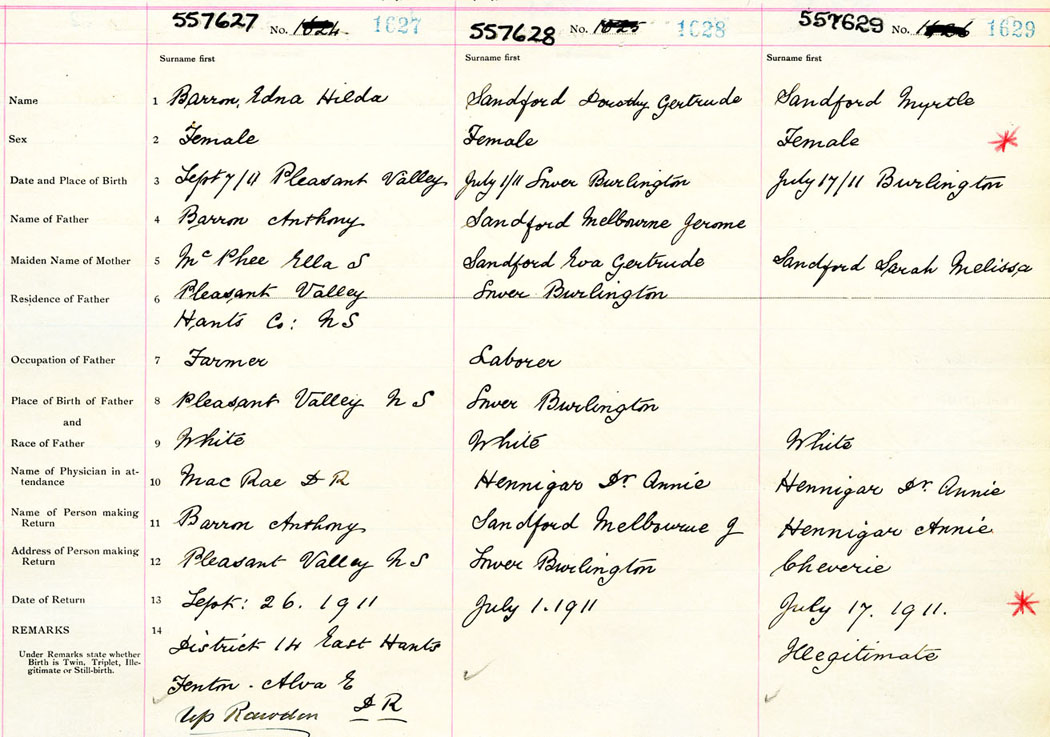 557627 No. 1627 557628 No. 1628 557629 No. 1629
Surname first Surname first Surname first
Name 1 Barron, Edna Hilda Sandford Dorothy Gertrude Sandford Myrtle
Sex 2 Female Female Female
Date and Place of Birth 3 Sept 7/11 Pleasant Valley July 1/11 Inver Burlington July 17/11 Burlington
Name of Father 4 Barron Anthony Sandford Melbourne Jerome
Maiden Name of Mother 5 McPhee Ella S Sandford Eva Gertrude Sandford Sarah Melissa
Residence of Father 6 Pleasant Valley Inver Burlington
Hants Co: NS
Occupation of Father 7 Farmer Laborer
Place of Birth of Father 8 Pleasant Valley NS Inver Burlington
and
Race of Father 9 White White White
Name of Physician in at-
tendance 10 MacRae DR Hennigar Dr. Annie Hennigar Dr. Annie
Name of Person making
Return 11 Barron Anthony Sandford Melbourne J Hennigar Annie
Address of Person making
Return 12 Pleasant Valley NS Inver Burlington Cheverie
Date of Return 13 Sept: 26. 1911 July 1. 1911 July 17. 1911.
REMARKS 14 District 14 East Hants Illegitimate
Under Remarks state whether
Birth is Twin, Triplet, Ille-
gitimate or Still-birth.
Fenton - Alva E
Up Rawdon DR